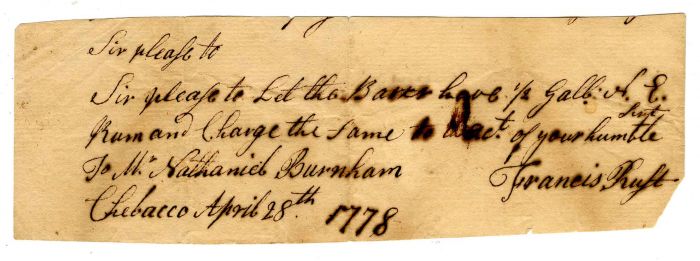 Sir please to
Sir please to Let the Barer have 1/2 Gall: N. E.
Rum and Charge the Same to Acct. of your humble Servt
To Mr Nathaniel Burnham Francis Rust
Chebacco April 28th. 1778